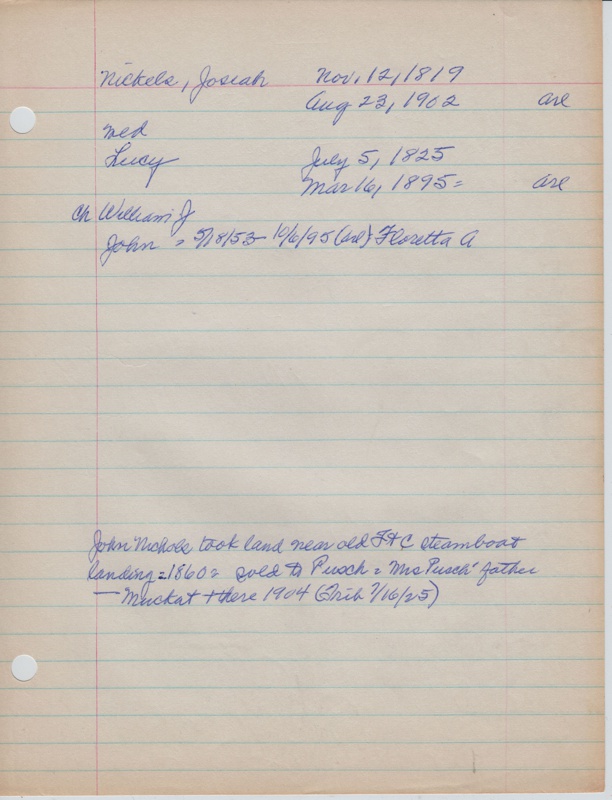 Nickels, Josiah Nov. 12, 1819
Aug 23, 1902 are
med
Lucy July 5, 1825
Mar 16, 1895 = are
Ch William J
John = 5/18/53 - 10/6/95 (are) Floretta A
John Nichols took land near old F+C steamboat
landing = 1860 = sold to Pusch = Mrs Pusch' father
— + there 1904 (Trib 7/16/25)